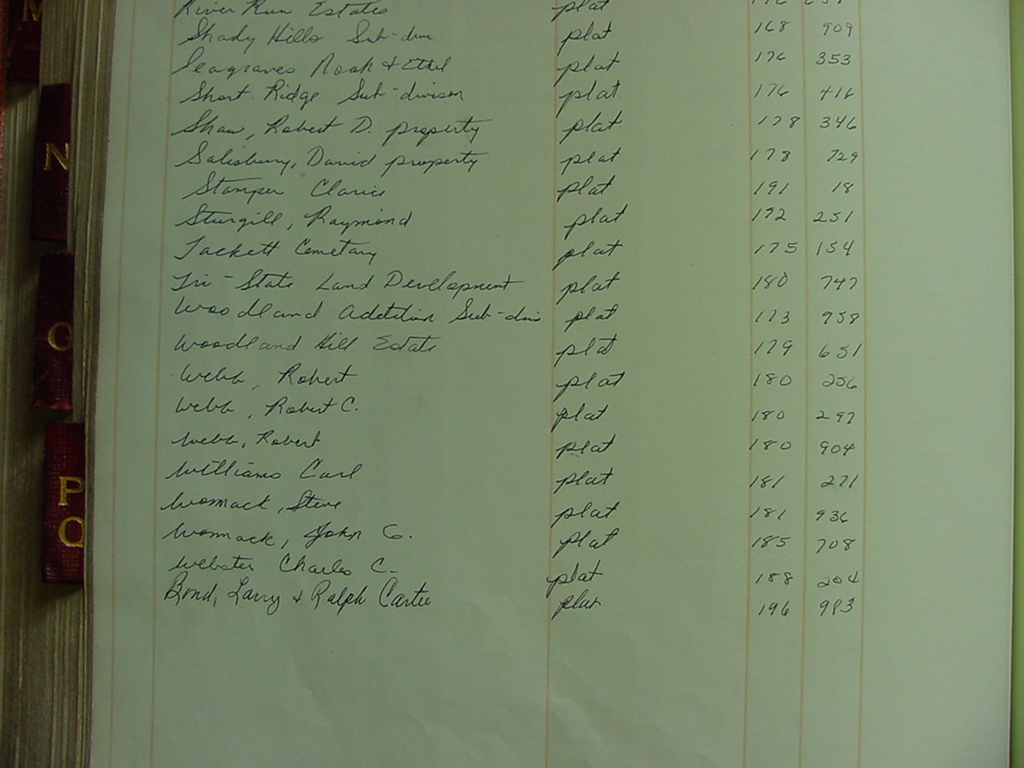 River Run Estates plat
Shady Hills Sub-divi plat 168 909
Seagraves Noah & Ethel plat 176 353
Short Ridge Sub-divison plat 176 416
Shaw, Robert D. property plat 178 346
Salisbury, David property plat 178 729
Stamper Clarice plat 191 18
Sturgill, Raymond plat 172 251
Tackett Cemetary plat 175 154
Tri-State Land Development plat 180 747
Woodland Addition Sub-divi plat 173 958
Woodland Hill Estate plat 179 651
Webb, Robert plat 180 256
Webb, Robert C. plat 180 297
Webb, Robert plat 180 904
Williams Carl plat 181 271
Womack, Steve plat 181 936
Womack, John G. plat 185 708
Webster Charles C. plat 188 204
Bond, Larry & Ralph Carter plat 196 983
M
N
O
P
Q